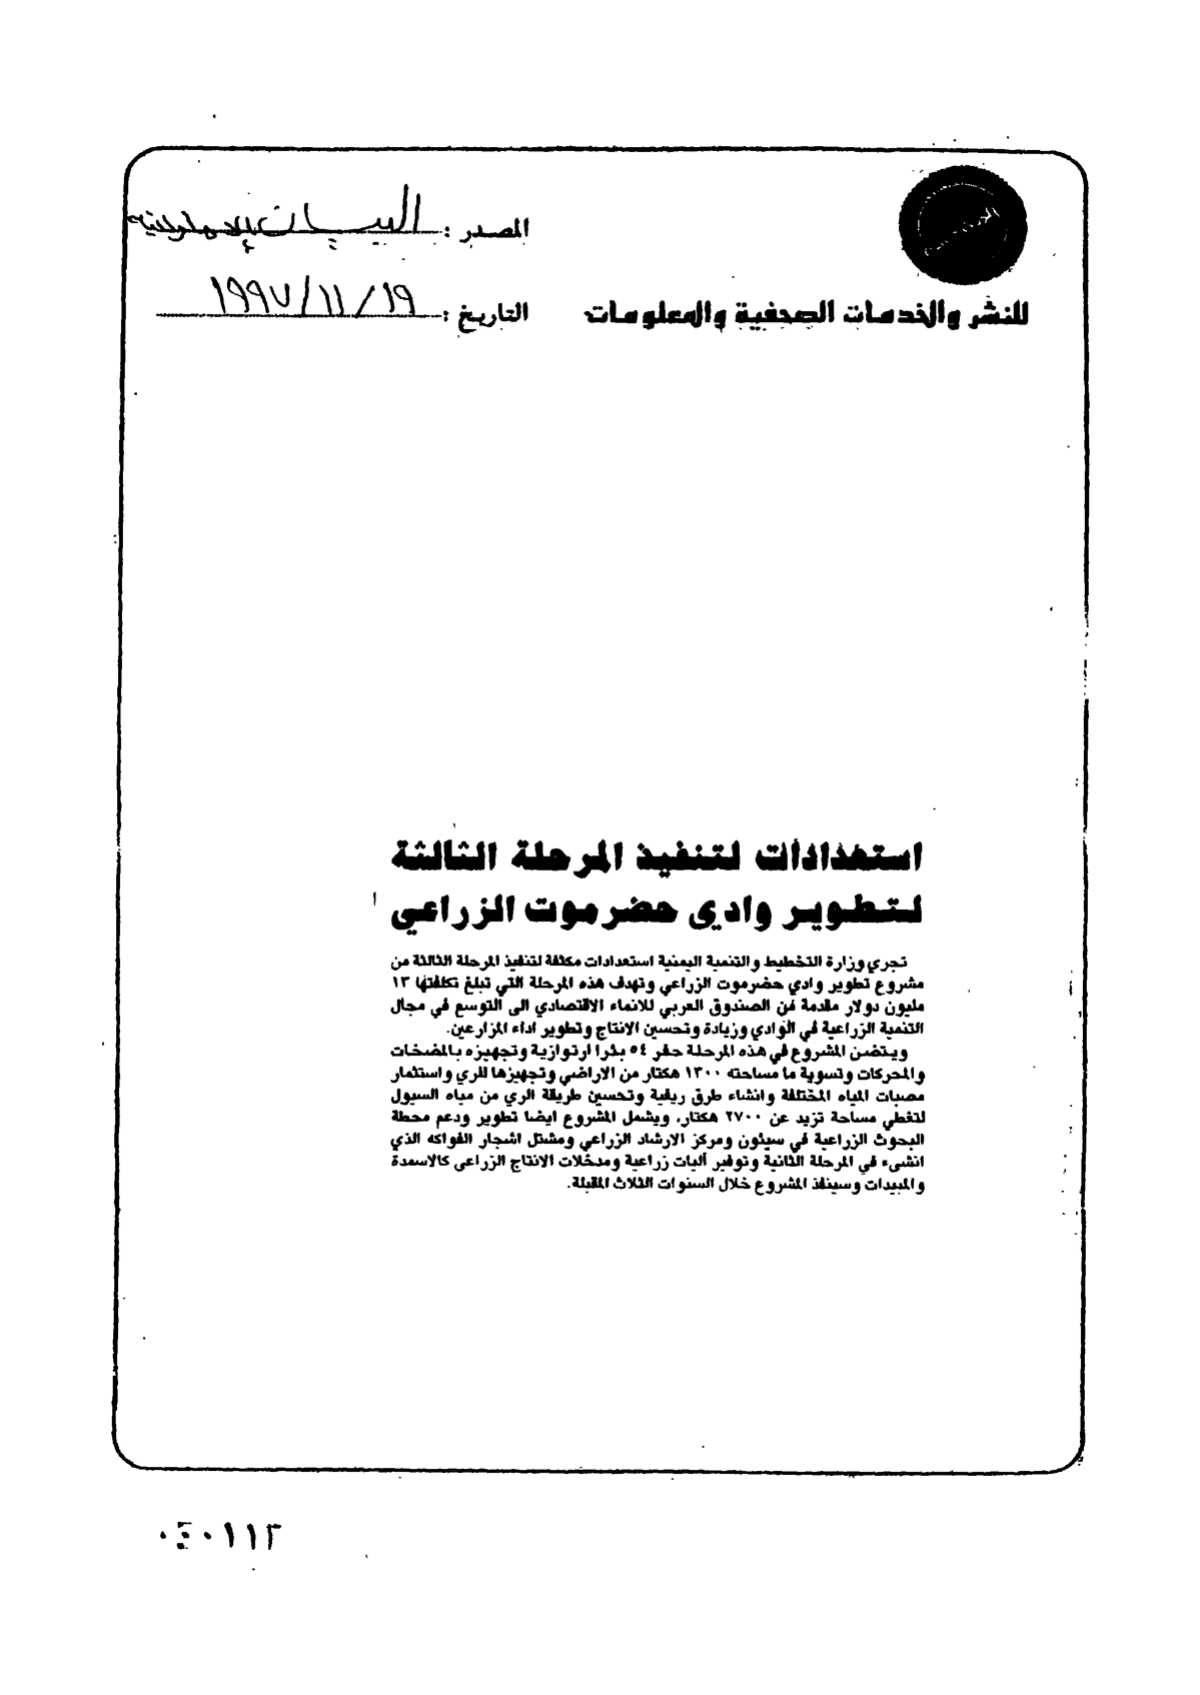 المصدر : البيان الإماراتية
للنشر والخدمات الصحفية والمعلومات
التاريخ : ١٩ / ١١ / ١٩٩٧
استعدادات لتنفيذ المرحلة الثالثة
لتطوير وادي حضرموت الزراعي
تجري وزارة التخطيط والتنمية اليمنية استعدادات مكثفة لتنفيذ المرحلة الثالثة من
مشروع تطوير وادي حضرموت الزراعي وتهدف هذه المرحلة التي تبلغ تكلفتها ١٣
مليون دولار مقدمة من الصندوق العربي للانماء الاقتصادي الى التوسع في مجال
التنمية الزراعية في الوادي وزيادة وتحسين الانتاج وتطوير اداء المزارعين.
ويتضمن المشروع في هذه المرحلة حفر ٥٤ بئرا ارتوازية وتجهيزه بالمضخات
والمحركات وتسوية ما مساحته ١٣٠٠ هكتار من الاراضي وتجهيزها للري واستثمار
مصبات المياه المختلفة وانشاء طرق ريفية وتحسين طريقة الري من مياه السيول
لتغطي مساحة تزيد عن ٢٧٠٠ هكتار، ويشمل المشروع ايضا تطوير ودعم محطة
البحوث الزراعية في سيئون ومركز الارشاد الزراعي ومشتل اشجار الفواكه الذي
انشىء في المرحلة الثانية وتوفير آليات زراعية ومدخلات الانتاج الزراعي كالاسمدة
والمبيدات وسينفذ المشروع خلال السنوات الثلاث المقبلة.